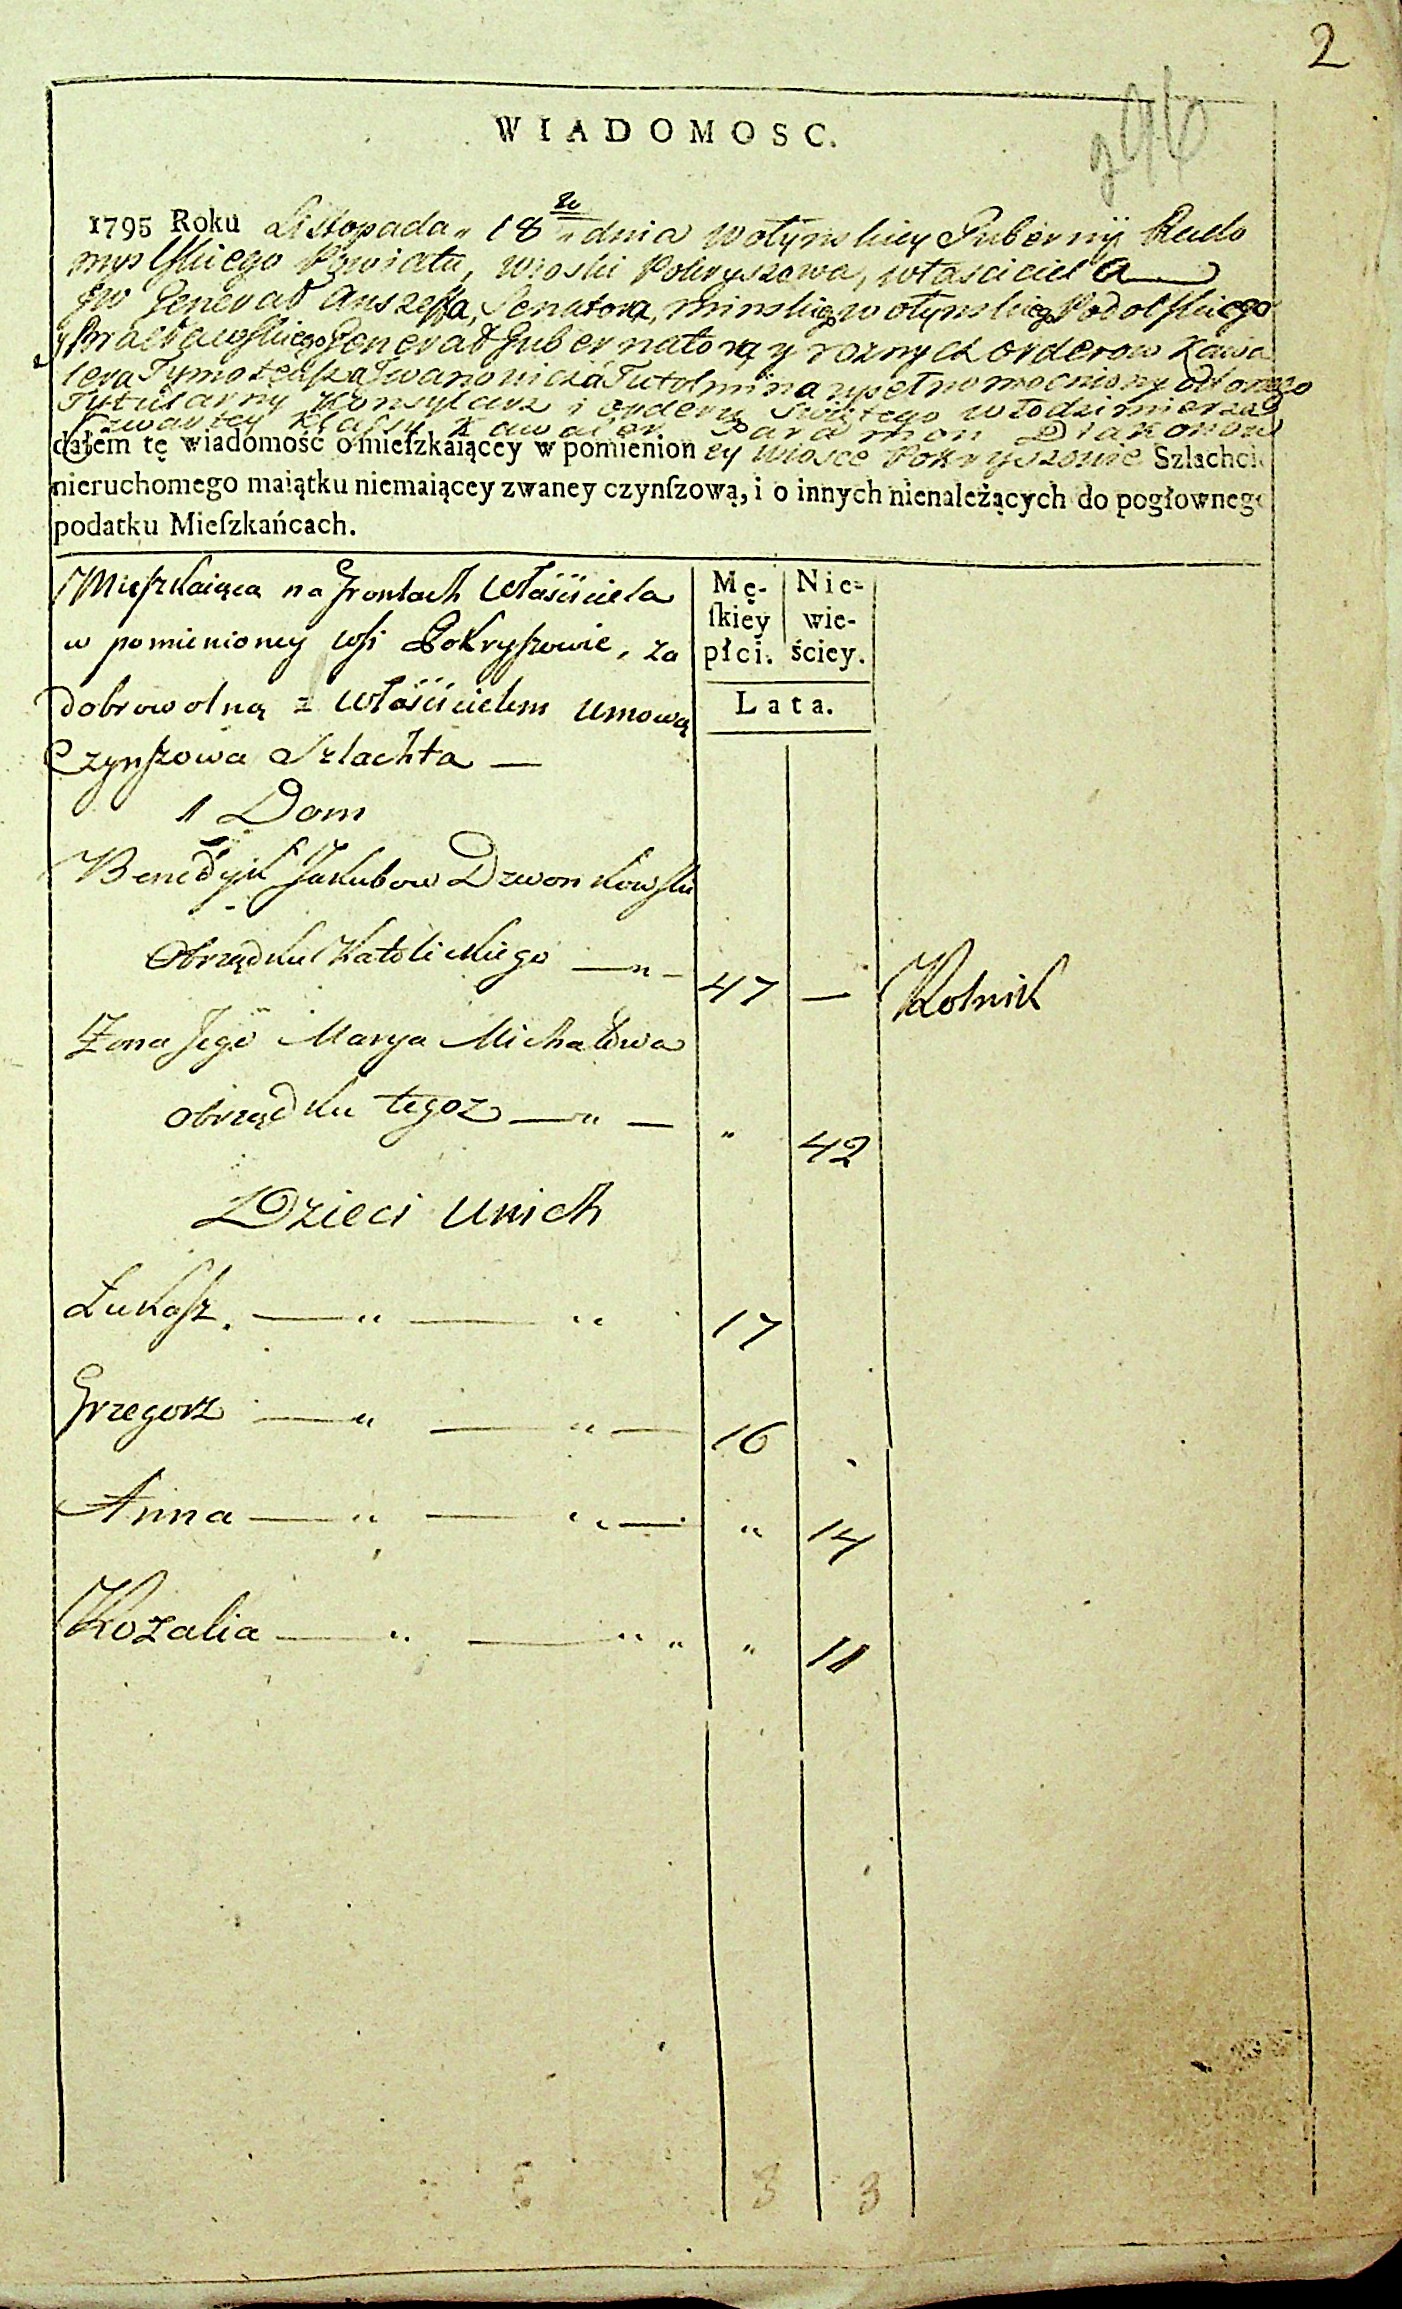 2
296
WIADOMOSC.
1795 Roku Listopada 18 dnia wołynskiey Gubernÿ Rado
myslskiego Powiatu, wioski Pokryszowa, właściciela
JW General Anszeffa, Senatora, minskieg wołynskieg Podolskiego
y Bracławskiego Generał Gubernatora y roznych orderow Kawa
lera Tymoteusza Iwanowicza Tutolmina upełnomocniony od onego
Tytularny Konsylarz i orderu Świętego włodzimierza
Czwartey Klassy Kawaler Paramon Diakonow
dałem tę wiadomość o mieſzkaiącey w pomienioney wiosce Pokryszowie Szlachcie
nieruchomego maiątku niemaiącey zwaney czynſzową, i o innych nienależących do pogłownego
podatku Mieſzkańcach.
Mieſzkaiąca na Grontach właściciela
w pomienioney wsi Pokryſzowie, za
dobrowolną z właścicielem umową
Czynſzowa Szlachta —
Mę-
ſkiey
płci.
Nie-
wie-
ściey.
Lata.
1 Dom
Benedykt Jakubow Dzwonkowski
Obrządku Katolickiego — 47 — Rolnik
Żona Jego Marya Michałowa
obrządku tegoz — " — " 42
Dzieci unich
Łukaſz. — " — " 17
Grzegorz — " — " — 16
Anna — " — " — " 14
Rozalia — " — " " " 11
3 3